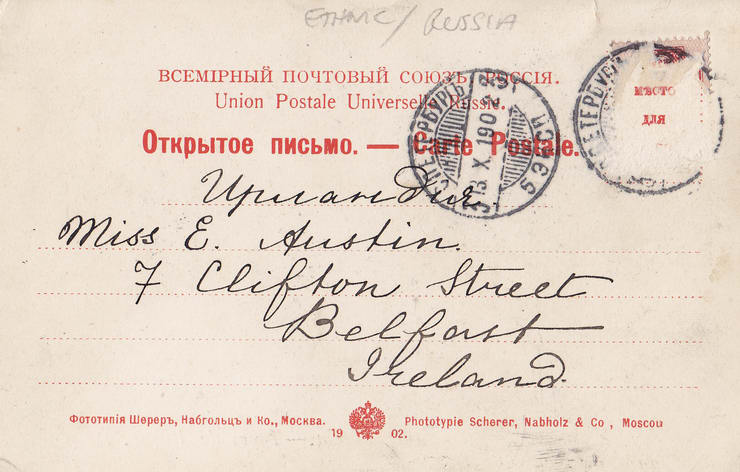 ETHNIC / RUSSIA
ВСЕМІРНЫЙ ПОЧТОВЫЙ СОЮЗЪ. РОССІЯ.
Union Postale Universelle Russie.
Открытое письмо. — Carte Postale.
МѢСТО
ДЛЯ
С.ПЕТЕРБУРГЪ
13. X. 190
5 ЭКСП
Ирландия.
Miss E. Austin.
7 Clifton Street
Belfast
Ireland.
Фототипія Шереръ, Набгольцъ и Ко., Москва.
Phototypie Scherer, Nabholz & Co, Moscou
19 02.